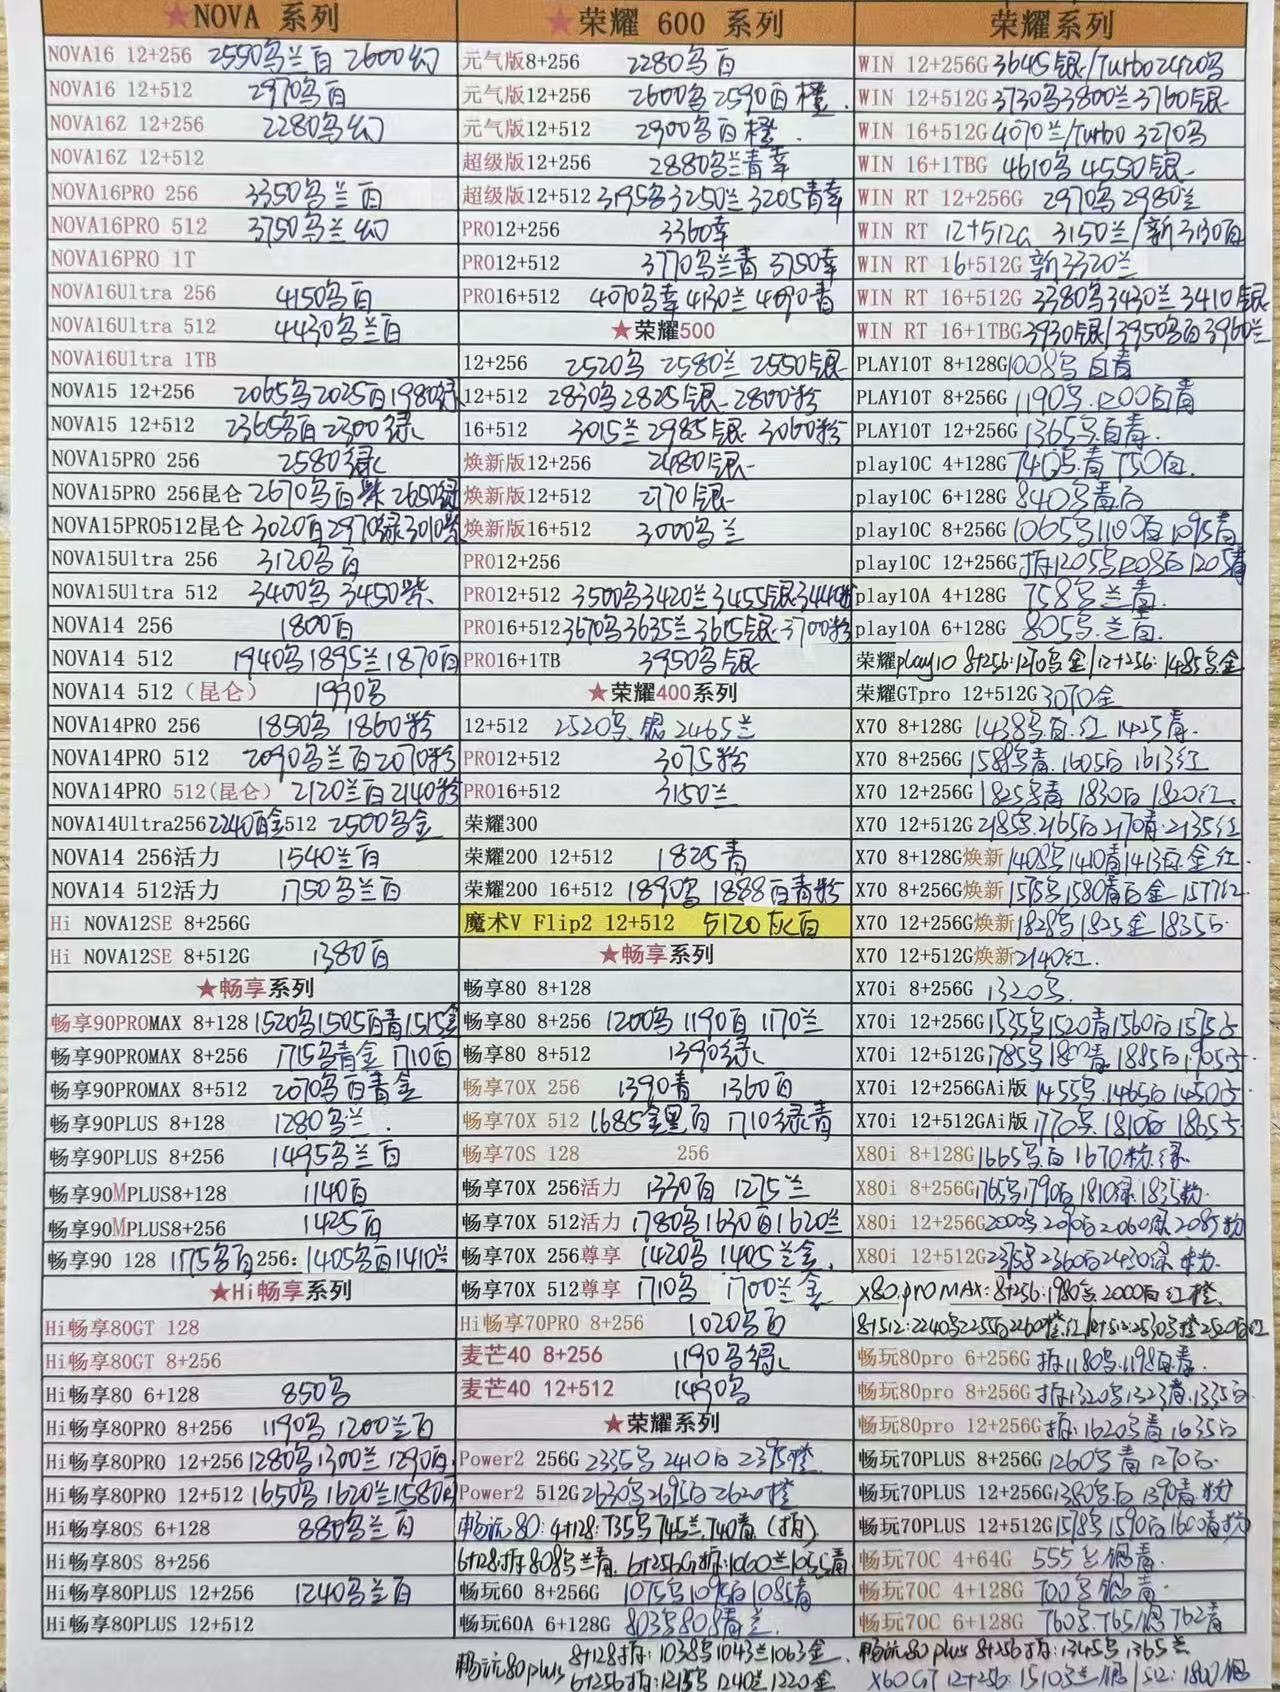 ★NOVA 系列
NOVA16 12+256 2550乌兰百 2600幻
NOVA16 12+512 2970乌百
NOVA16Z 12+256 2280乌幻
NOVA16Z 12+512
NOVA16PRO 256 3350乌兰百
NOVA16PRO 512 3750乌兰幻
NOVA16PRO 1T
NOVA16Ultra 256 4150乌百
NOVA16Ultra 512 4430乌兰百
NOVA16Ultra 1TB
NOVA15 12+256 2065乌2025百1980绿
NOVA15 12+512 2365乌百2300绿
NOVA15PRO 256 2580绿
NOVA15PRO 256昆仑 2670乌百紫 2650绿
NOVA15PRO512昆仑 3020百2970绿3010紫
NOVA15Ultra 256 3120乌百
NOVA15Ultra 512 3400乌 3450紫
NOVA14 256 1800百
NOVA14 512 1940乌1895兰1870百
NOVA14 512（昆仑） 1990乌
NOVA14PRO 256 1850乌 1860粉
NOVA14PRO 512 2090乌兰百2070粉
NOVA14PRO 512(昆仑) 2120兰百2140粉
NOVA14Ultra256 2240百金512 2500乌金
NOVA14 256活力 1540兰百
NOVA14 512活力 1750乌兰百
Hi NOVA12SE 8+256G
Hi NOVA12SE 8+512G 1380百
★畅享系列
畅享90PROMAX 8+128 1520乌1505百青1515金
畅享90PROMAX 8+256 1715乌青金 1710百
畅享90PROMAX 8+512 2070乌百青金
畅享90PLUS 8+128 1280乌兰.
畅享90PLUS 8+256 1495乌兰百
畅享90MPLUS8+128 1140百
畅享90MPLUS8+256 1425百
畅享90 128 1175乌百256: 1405乌百1410兰
★Hi畅享系列
Hi畅享80GT 128
Hi畅享80GT 8+256
Hi畅享80 6+128 850乌
Hi畅享80PRO 8+256 1190乌 1200兰百
Hi畅享80PRO 12+256 1280乌1300兰1290百
Hi畅享80PRO 12+512 1650乌1620兰1580百
Hi畅享80S 6+128 880乌兰百
Hi畅享80S 8+256
Hi畅享80PLUS 12+256 1240乌兰百
Hi畅享80PLUS 12+512
★荣耀 600 系列
元气版8+256 2280乌百
元气版12+256 2600乌2590百橙.
元气版12+512 2900乌百橙.
超级版12+256 2880乌兰青幸
超级版12+512 3195乌3250兰3205青幸
PRO12+256 3360幸
PRO12+512 3770乌兰青 3750幸
PRO16+512 4070乌幸4130兰4090青
★荣耀500
12+256 2520乌 2580兰 2550银
12+512 2830乌2825银 2800粉
16+512 3015兰2985银 3060粉
焕新版12+256 2480银
焕新版12+512 2770银
焕新版16+512 3000乌兰
PRO12+256
PRO12+512 3500乌3420兰3455银3440粉
PRO16+512 3670乌3635兰3615银3700粉
PRO16+1TB 3950乌银
★荣耀400系列
12+512 2520乌银2465兰
PRO12+512 3075粉
PRO16+512 3150兰
荣耀300
荣耀200 12+512 1825青
荣耀200 16+512 1890乌 1888百青粉
魔术V Flip2 12+512 5120灰百
★畅享系列
畅享80 8+128
畅享80 8+256 1200乌 1190百 1170兰
畅享80 8+512 1390绿
畅享70X 256 1390青 1360百
畅享70X 512 1685金黑百 1710绿青
畅享70S 128 256
畅享70X 256活力 1330百 1275兰
畅享70X 512活力 1780乌1630百1620兰
畅享70X 256尊享 1420乌 1405兰金
畅享70X 512尊享 1710乌 1700兰金
Hi畅享70PRO 8+256 1020乌百
麦芒40 8+256 1190乌绿
麦芒40 12+512 1490乌
★荣耀系列
Power2 256G 2335乌2410百2395橙
Power2 512G 2630乌2695百2620橙
畅玩80: 4+128:735乌745兰.740青(拆).
6+128拆808乌兰青. 6+256G拆:1060兰1055青
畅玩60 8+256G 1075乌1095百1085青
畅玩60A 6+128G 803乌808青兰.
畅玩80plus 8+128拆:1038乌1043兰1063金.
6+256拆:1215乌1240兰1220金
荣耀系列
WIN 12+256G 3645银/Turbo2420乌
WIN 12+512G 3730乌3800兰3760银
WIN 16+512G 4070兰/Turbo 3270乌
WIN 16+1TBG 4610乌 4550银
WIN RT 12+256G 2970乌2980兰
WIN RT 12+512G 3150兰/新3130百
WIN RT 16+512G 新3320兰
WIN RT 16+512G 3380乌3430兰3410银
WIN RT 16+1TBG 3930银/3950乌百3960兰
PLAY10T 8+128G 1008乌百青
PLAY10T 8+256G 1190乌.1200百青
PLAY10T 12+256G 1365乌百青.
play10C 4+128G 740乌.青 750百
play10C 6+128G 840乌青百
play10C 8+256G 1065乌1100百1095青
play10C 12+256G 拆1205乌1208百1205青
play10A 4+128G 758乌兰青.
play10A 6+128G 805乌.兰百.
荣耀play10 8+256:1270乌金/12+256:1485乌金
荣耀GTpro 12+512G 3070金
X70 8+128G 1438乌百.红 1425青.
X70 8+256G 1588乌青.1605百 1613红
X70 12+256G 1825乌青 1830百 1820红
X70 12+512G 2185乌.2165百2170青.2135红
X70 8+128G焕新 1408乌1410青1413百.金红.
X70 8+256G焕新 1575乌1580青百金 1577红
X70 12+256G焕新 1828乌1825金 1835百
X70 12+512G焕新 2140红.
X70i 8+256G 1320乌.
X70i 12+256G 1535乌1520青1560百1575方
X70i 12+512G 1785乌 青.1885百1905方
X70i 12+256GAi版 1455乌.1465百1450方
X70i 12+512GAi版 1770乌.1810百1865方
X80i 8+128G 1665乌百1670粉.绿
X80i 8+256G 1765乌1790百1810绿.1835粉.
X80i 12+256G 2000乌.2090百2060绿.2085粉
X80i 12+512G 2375乌2360百2430绿 粉.
X80.pro MAX: 8+256:1980乌.2000百红橙.
8+512:2240乌2255百2260橙.红/12+512:2530乌橙2520百红
畅玩80pro 6+256G 拆1180乌.1198百青.
畅玩80pro 8+256G 拆1320乌1323青.1335百
畅玩80pro 12+256G 拆:1620乌青1635百
畅玩70PLUS 8+256G 1260乌青1270百
畅玩70PLUS 12+256G 1380乌.百1390青粉
畅玩70PLUS 12+512G 1578乌1590百1600青粉
畅玩70C 4+64G 555兰银青.
畅玩70C 4+128G 700乌银青.
畅玩70C 6+128G 760乌.765银762青
畅玩80plus 8+256拆:1345乌1365兰
X60GT 12+256:1510乌兰银/512:1800银